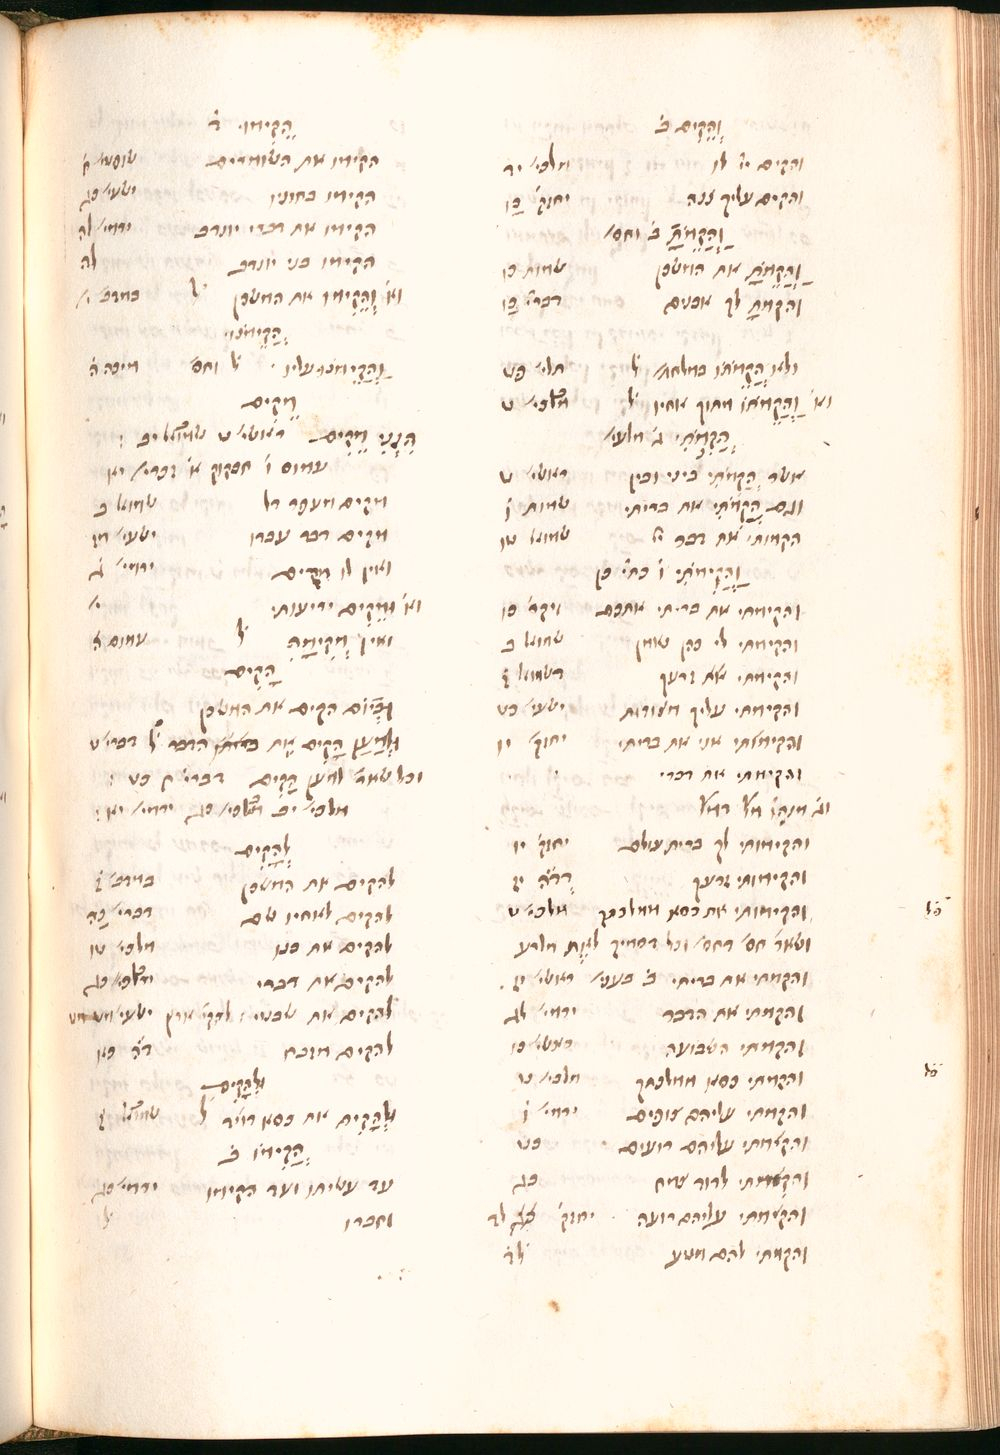 וְהֵקִים ב̇
והקים יי לו מלכי׳ יד
והקים עליך צנה יחזק׳ כו
וַהֲקֵמֹתָ ב̇ וחס׳
וַהֲקֵמֹתָ את המשכן שמות כו
והקמת לך אבנים דברי׳ כז
ולא הֲקֵמֹתוֹ במלחמ׳ ל̇ תלי׳ פט
וא׳ וַהֲקֵמֹתוֹ מתוך אחיו ל̇ מלכי׳ ט
הֲקִמֹתִי ג̇ מלעי׳
אשר הֲקִמֹתִי ביני ובין ראשי׳ ט
וגם הֲקִמֹתִי את בריתי שמות ו̇
הקמותי את דבר יי שמוא׳ טו
וַהֲקִימֹתִי ו̇ כתי׳ כן
והקימתי את בריתי אתכם ויקר׳ כו
והקימתי לי כהן נאמן שמוא׳ ב
והקימתי את זרעך דשמוא׳ ז̇
והקימתי עליך מצורות ישעי׳ כט
והקימותי אני את בריתי יחזק׳ יו
והקימתי את דברי
וג̇ מנהון מל̇ דמל̇
והקימותי לך ברית עולם יחזק׳ יו
והקימותי זרעך דד̇ה̇ יז
והקימותי את כסא ממלכתך מלכי׳ ט
ושאר׳ חס׳ דחס׳ וכל דסמיך לאֶת מלרע
והקמתי את בריתי ב̇ בעני׳ ראשי׳ יז
והקמתי את הדבר ירמי׳ לג
והקמתי השבועה ראשי׳ כו
והקמתי כסא ממלכתך מלכי׳ ט
והקמתי עליהם צופים ירמי׳ ו̇
והקמתי עליהם רועים כט
והקמתי לדוד צמח כג
והקמתי עליהם רועה יחזק׳ לד
והקמתי להם מטע לד̇
הָקִימוּ ד̇
הקימו את השומרים ירמי׳ נא
הקימו בחוניו ישעי׳ כג
הקימו את דברי יונדב ירמי׳ לה
הקימו בני יונדב לה
וא׳ וְהֵקִימוּ את המשכן ל̇ במדב׳ י׳
הֲקִימֹנוּ
וַהֲקֵימֹנוּ עליו ל̇ וחס׳ מיכה ה̇
מֵקִים
הִנְנִי מֵקִים ראשי׳ ט שמוא׳ יב :
עמוס ו̇ חבקוק א̇ זכרי׳ יא
מקים מעפר דל שמוא׳ ב
מקים דבר עבדו ישעי׳ מד
ואין לו מקים ירמי׳ נ̇
וא׳ וּמֵקִים יריעותי י׳
ואין מְקִימָהּ ל̇ עמוס ה̇
הָקִים
וּבְיוֹם הקים את המשכן
וּלְמַעַן הָקִים אֶת הדבר ל̇ דברי׳ ט
וכל שאר׳ למען הָקִים דברי׳ ח̇ כט :
מלכי׳ יב מלכי׳ כג ירמי׳ יא :
לְהָקִים
להקים את המשכן במדב׳ ז̇
להקים לאחיו שם דברי׳ כה
להקים את בנו מלכי׳ טו
להקים את דברי מלכי׳ כג
להקים את שבטי : להקי׳ ארץ ישעי׳ מט מט
להקים מזבח ד̇ה̇ כא
וּלְהָקִים
וּלְהָקִים את כסא דויד ל̇ שמוא׳ ג̇
הֲקִימוֹ ב̇
עד עשיתו ועד הקימו ירמי׳ כג
וחברו ל̇